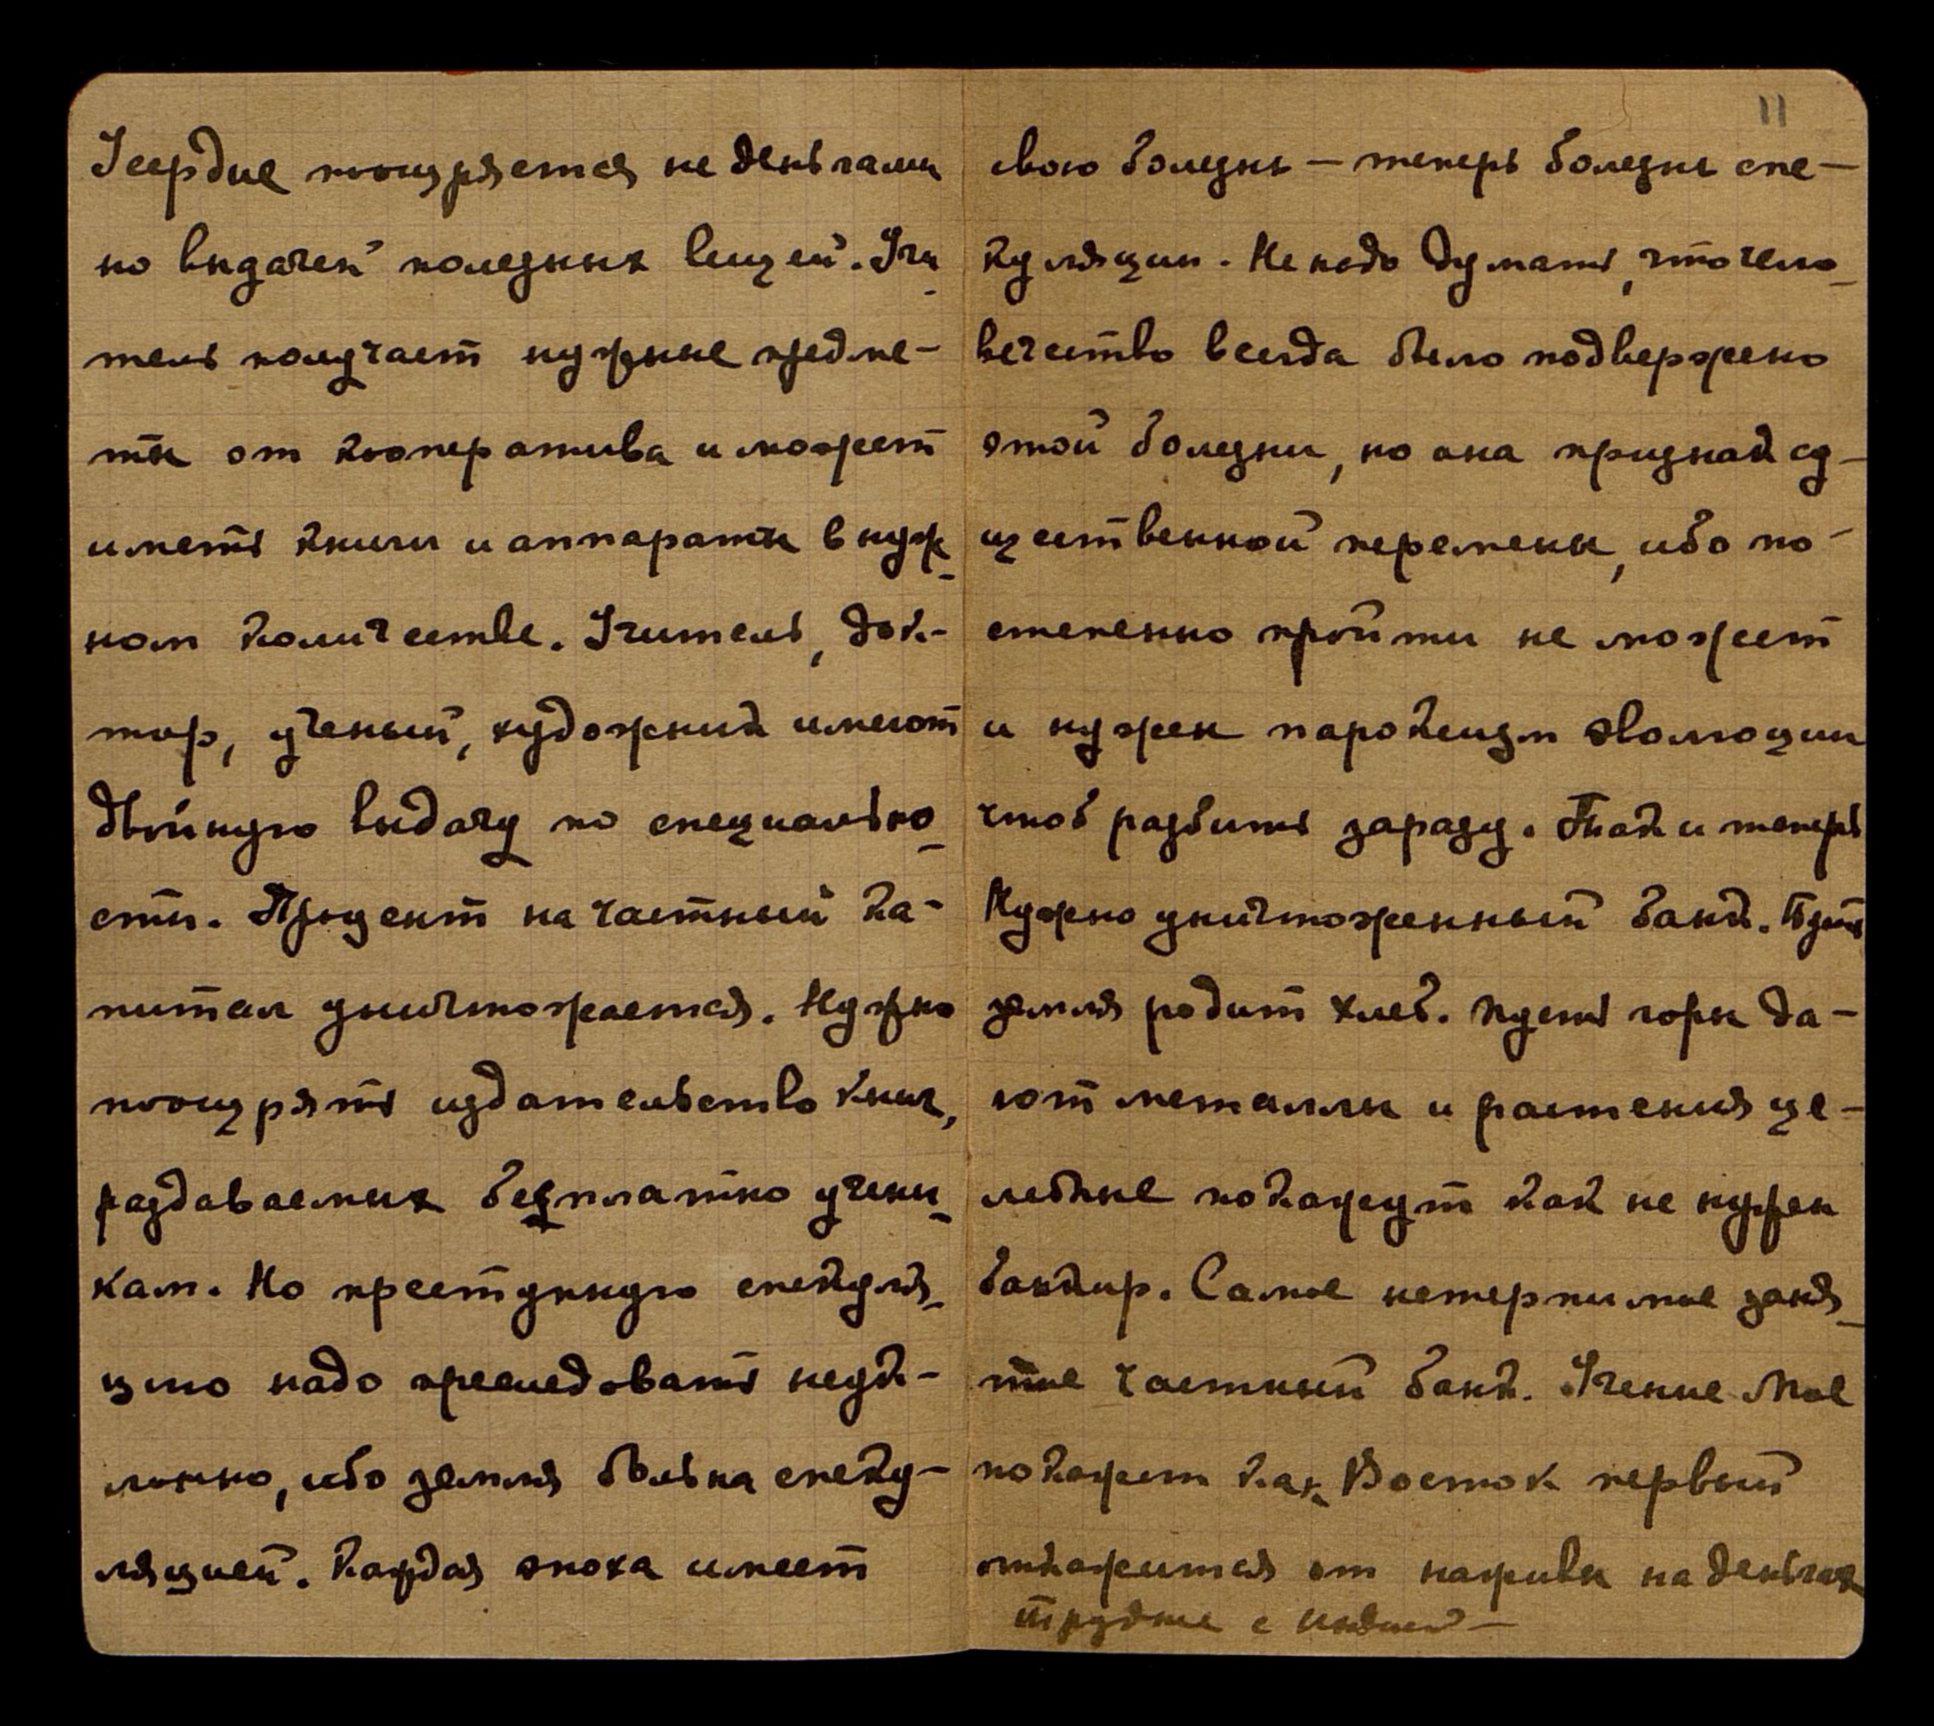 Усердие поощряется не деньгами
но выдачей полезных вещей. Учи-
тель получает нужные предме-
ты от кооператива и может
иметь книги и аппараты в нуж-
ном количестве. Учитель, док-
тор, ученый, художник имеют
двойную выдачу по специально-
сти. Процент на частный ка-
питал уничтожается. Нужно
поощрять издательство книг,
раздаваемых безплатно учени-
кам. Но преступную спекуля-
цию надо преследовать неук-
лонно, ибо земля больна спеку-
ляцией. Каждая эпоха имеет
11
свою болезнь — теперь болезнь спе-
куляции. Не надо думать, что чело-
вечество всегда было подвержено
этой болезни, но она признак су-
щественной перемены, ибо по-
степенно пройти не может
и нужен пароксизм эволюции
чтоб разбить заразу. Так и теперь
Нужно уничтоженный банк. Пусть
земля родит хлеб. Пусть горы да-
ют металлы и растения це-
лебные покажут как не нужен
банкир. Самое нетерпимое заня-
тие частный банк. Учение Мое
покажет как Восток первый
откажется от наживы на деньгах
труднее с Индией —